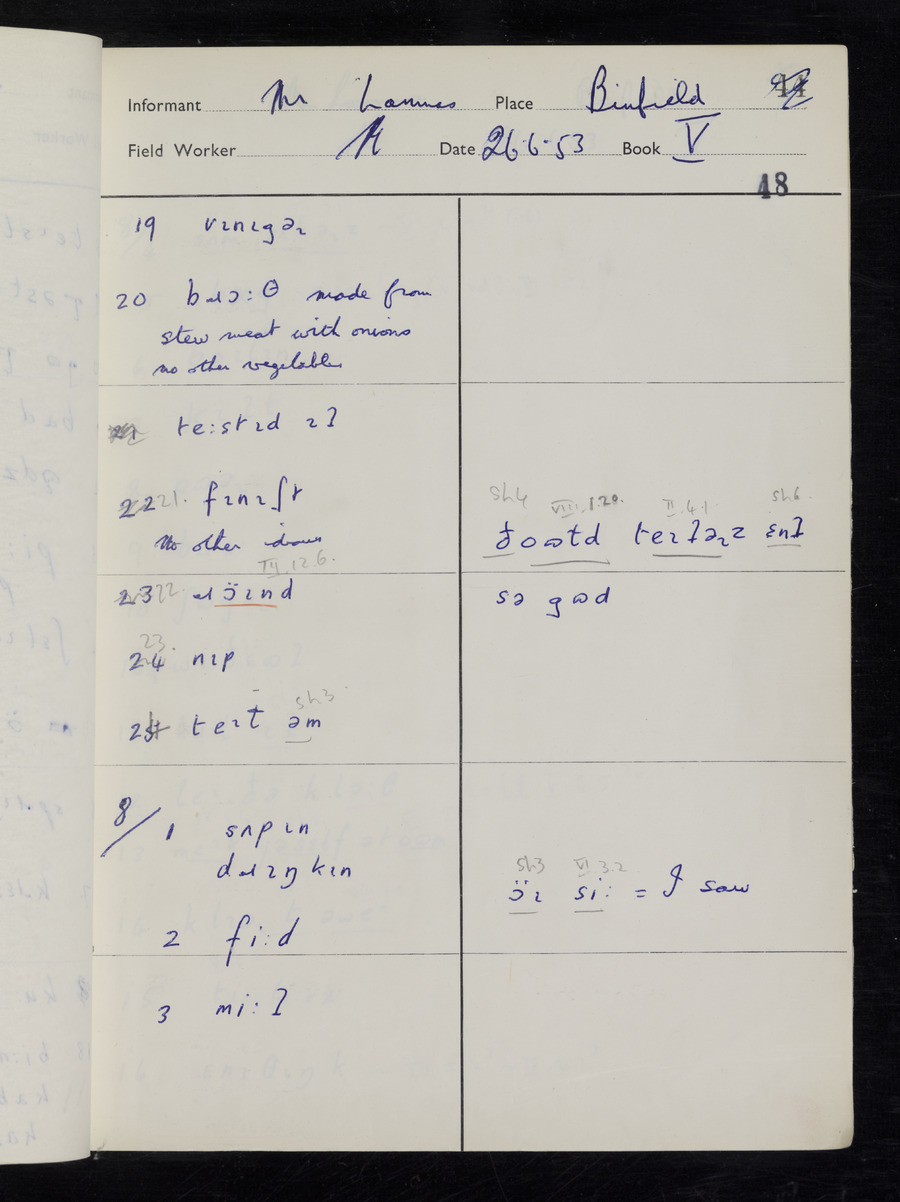 Informant Mr Lammas Place Binfield
Field Worker Date 26·6·53 Book V
48
19 vɪnɪgəɹ
20 bɹɔ:θ made from
stew meat with onions
no other vegetables
te:stɪd ɪʔ
22 21. fɪnɪʃt
No other
III.12.6.
23 22 ɹɔ̈ɪnd
23.
24 nɪp
sh3
25 əm
8/1 sʌpɪn
dɹɪŋkɪn
2 fi:d
3 mi:ʔ
sh4 VIII.1.20. II.4.1 sh6
teɪʔəɹz ɛnʔ
sə gʊd
sh3 VI 3.2
ɔ̈ɪ si: = I saw